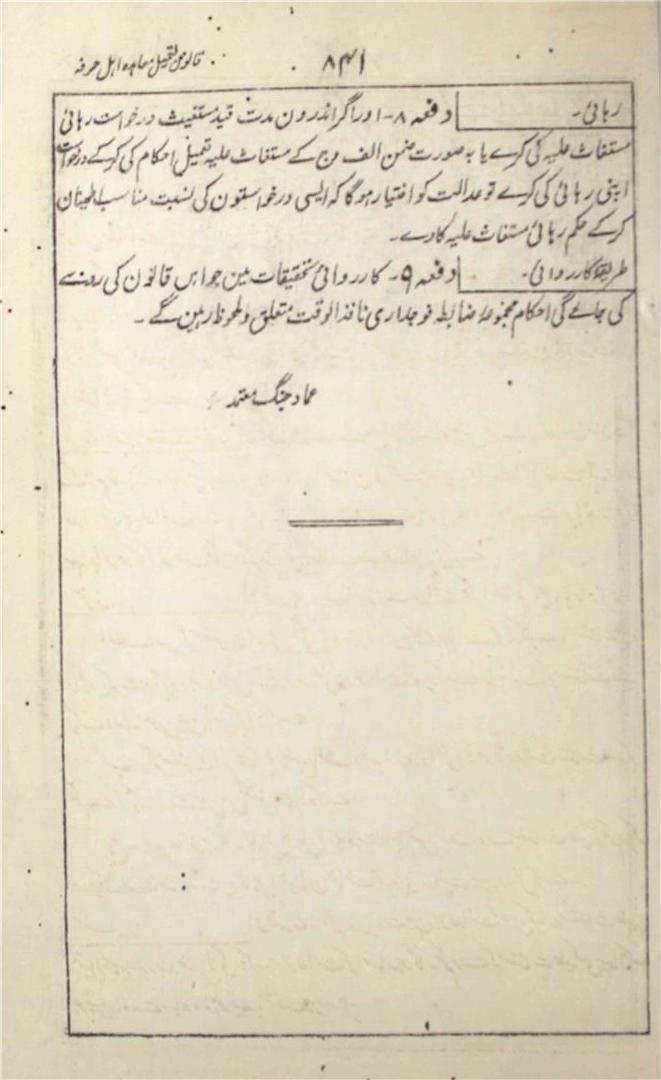 ۸۴۱
قانون تعمیل معاہدہ اہل حرفہ
رہائی۔ دفعہ ۸۔ اور اگر اندرون مدت قید مستغیث درخواست رہائی
مستغاث علیہ کی کرے یا بہ صورت ضمن الف و ج کے مستغاث علیہ تعمیل احکام کی کر کے درخواست
اپنی رہائی کی کرے تو عدالت کو اختیار ہوگا کہ ایسی درخواستون کی نسبت مناسب اطمینان
کر کے حکم رہائی مستغاث علیہ کا دے۔
طریقہ کارروائی۔ دفعہ ۹۔ کارروائی تحقیقات مین جو اس قانون کی رو سے
کی جاے گی احکام مجموعۂ ضابطہ فوجداری نافذ الوقت متعلق و ملحوظ رہین گے۔
عماد جنگ معتمد